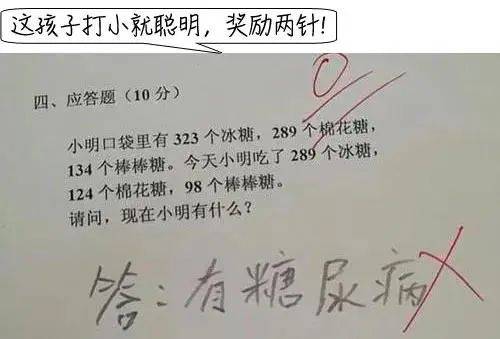 这孩子打小就聪明，奖励两针!
四、应答题（10 分）
0
小明口袋里有 323 个冰糖，289 个棉花糖，
134 个棒棒糖。今天小明吃了 289 个冰糖，
124 个棉花糖，98 个棒棒糖。
请问，现在小明有什么？
答：有糖尿病